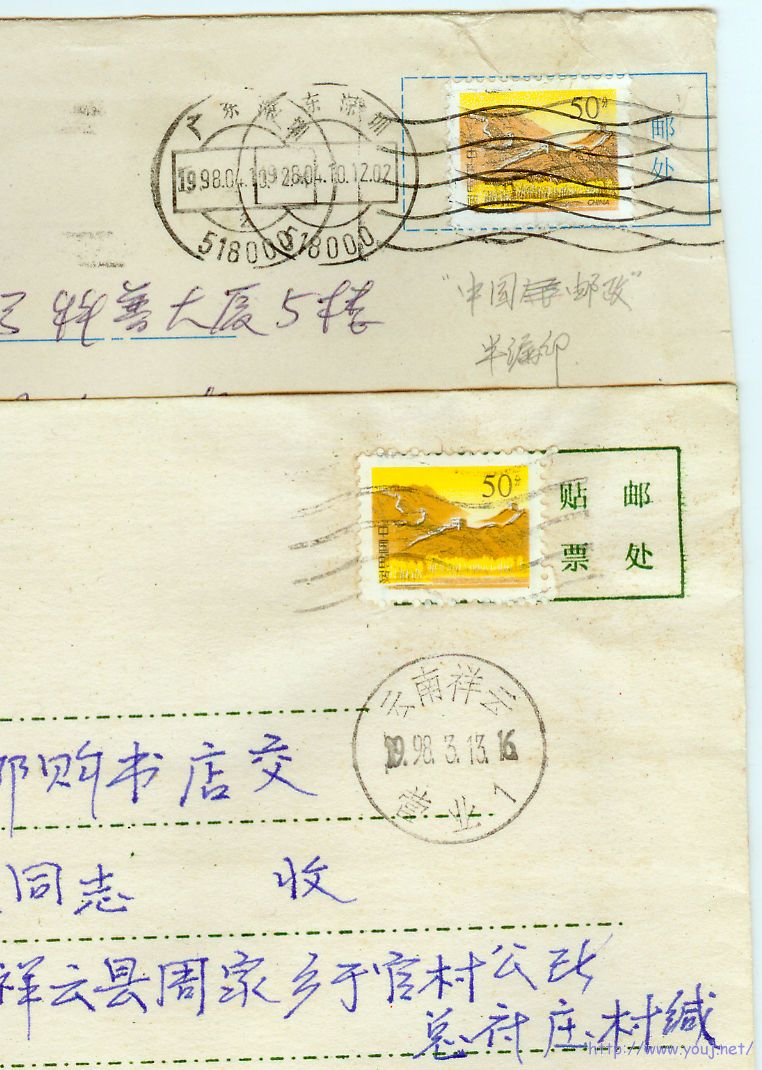 广东深圳 广东深圳
1998.04.10.12.02
518000 518000
50分
CHINA
邮
处
科普大厦5楼
"中国邮政"
半漏印
50分
贴 邮
票 处
云南祥云
19.98.3.13.16
营业1
邮购书店交
同志 收
祥云县周家乡于官村公所
庄村缄
http://www.youj.net/